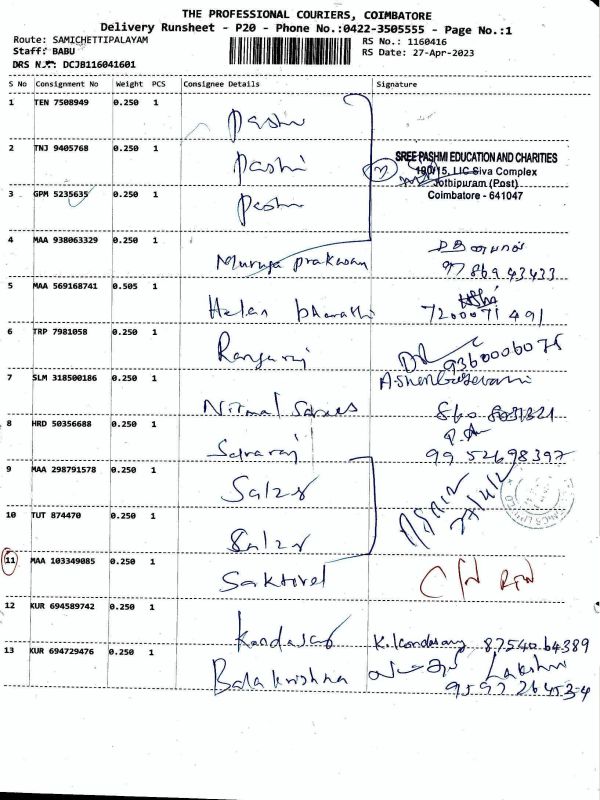 THE PROFESSIONAL COURIERS, COIMBATORE
Delivery Runsheet - P20 - Phone No.:0422-3505555 - Page No.:1
Route: SAMICHETTIPALAYAM RS No.: 1160416
Staff: BABU RS Date: 27-Apr-2023
DRS N : DCJB116041601
S No Consignment No Weight PCS Consignee Details Signature
1 TEN 7508949 0.250 1 Pashi
2 TNJ 9405768 0.250 1 Pashi
SREE PASHMI EDUCATION AND CHARITIES
190/15, LIC Siva Complex
Jothipuram (Post)
Coimbatore - 641047
3 GPM 5235635 0.250 1 Pashi
4 MAA 938063329 0.250 1 Muruga prakasam
97869 43433
5 MAA 569168741 0.505 1 Helan bharathi 7200071491
6 TRP 7981058 0.250 1 Rangaraj 9360006075
7 SLM 318500186 0.250 1 Nirmal
8 HRD 50356688 0.250 1 Selvaraj 99 52698397
9 MAA 298791578 0.250 1 Salzer
10 TUT 874470 0.250 1 Salzer
11 MAA 103349085 0.250 1 Saktivel
12 KUR 694589742 0.250 1 Kandasamy K. Kandasamy 8754064389
13 KUR 694729476 0.250 1 Balakrishna Lakshmi